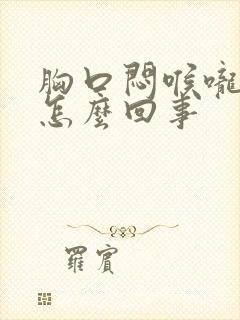 胸口悶喉嚨
怎麼回事
羅賓